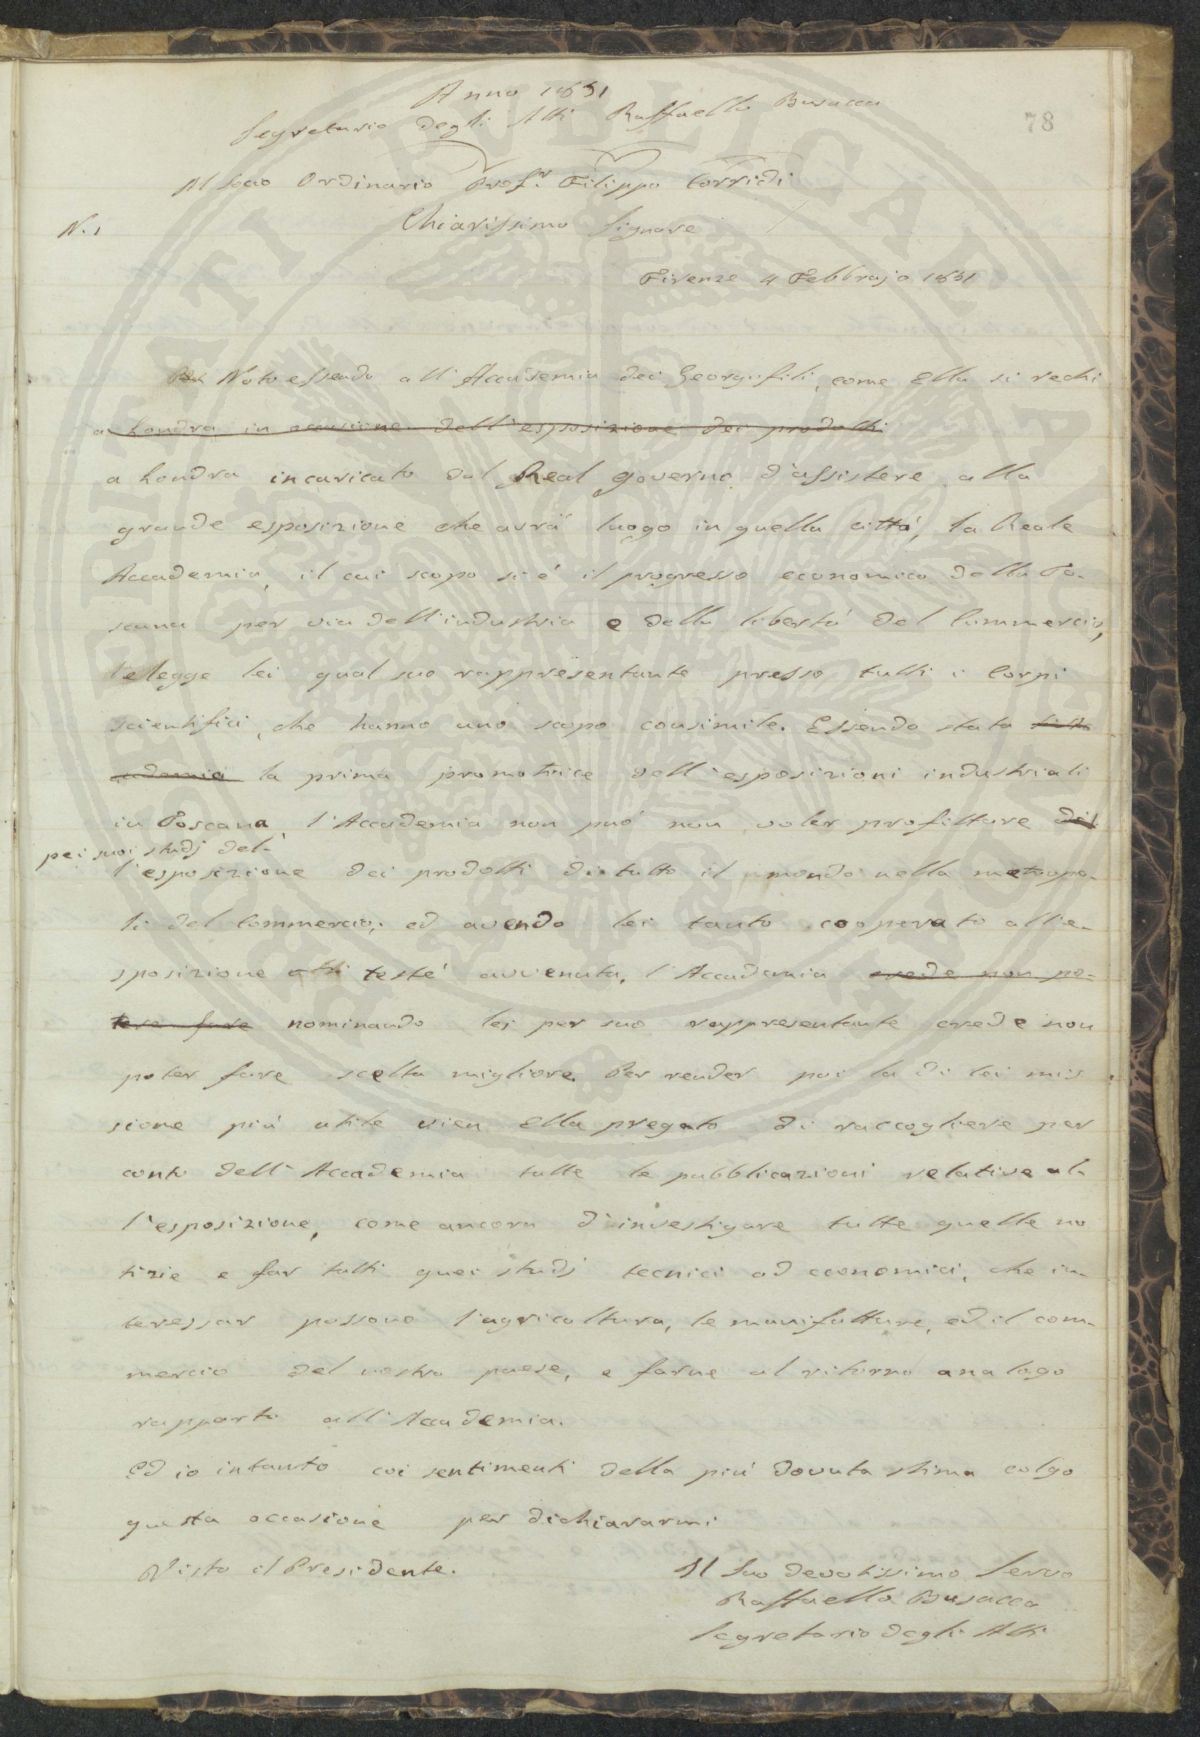 Anno 1851
Segretario degli Atti Raffaello Busacca
78
Al Socio Ordinario Prof.r Filippo Corridi
N. 1
Chiarissimo Signore
Firenze 4 Febbrajo 1851
Noto essendo all'Accademia dei Georgofili, come Ella si rechi
a Londra in occasione dell'esposizione dei prodotti
a Londra incaricato dal Real governo d'assistere alla
grande esposizione che avrà luogo in quella città, la Reale
Accademia, il cui scopo si è il progresso economico della To-
scana per via dell'industria e della libertà del Commercio,
l'elegge lei qual suo rappresentante presso tutti i Corpi
scientifici, che hanno uno scopo consimile. Essendo stata
la prima promotrice dell'esposizioni industriali
in Toscana, l'Accademia non può non voler profittare del
pei suoi studj del-
l'esposizione dei prodotti di tutto il mondo nella metropo-
li del Commercio; ed avendo lei tanto cooperato all'e-
sposizione testé avvenuta, l'Accademia crede non po-
tere fare nominando lei per suo rappresentante crede non
poter fare scelta migliore. Per render poi la di lei mis
sione più utile vien Ella pregato di raccogliere per
conto dell'Accademia tutte le pubblicazioni relative al-
l'esposizione, come ancora d'investigare tutte quelle no
tizie e far tutti quei studj tecnici ed economici, che in-
teressar possono l'agricoltura, le manifatture, ed il com-
mercio del nostro paese, e farne al ritorno analogo
rapporto all'Accademia.
Ed io intanto coi sentimenti della più dovuta stima colgo
questa occasione per dichiararmi
Visto il Presidente.
Il Suo devotissimo Servo
Raffaello Busacca
Segretario degli Atti